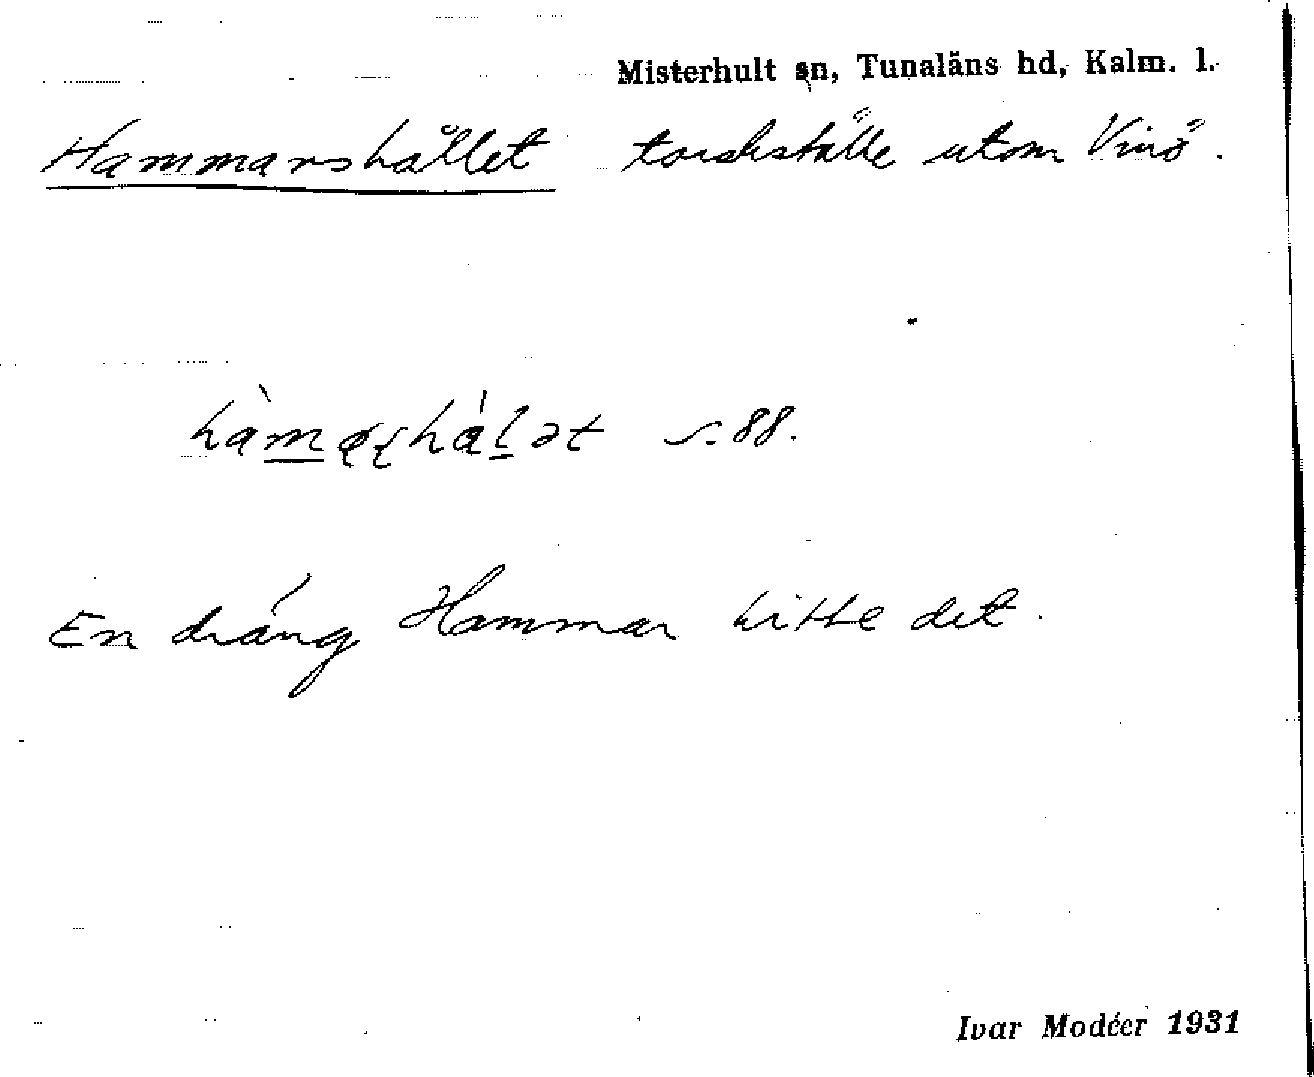 Misterhult sn, Tunaläns hd, Kalm. l.
Hammarshållet torskställe utom Vinö.
s. 88.
En dräng Hammar hitte det.
Ivar Modéer 1931